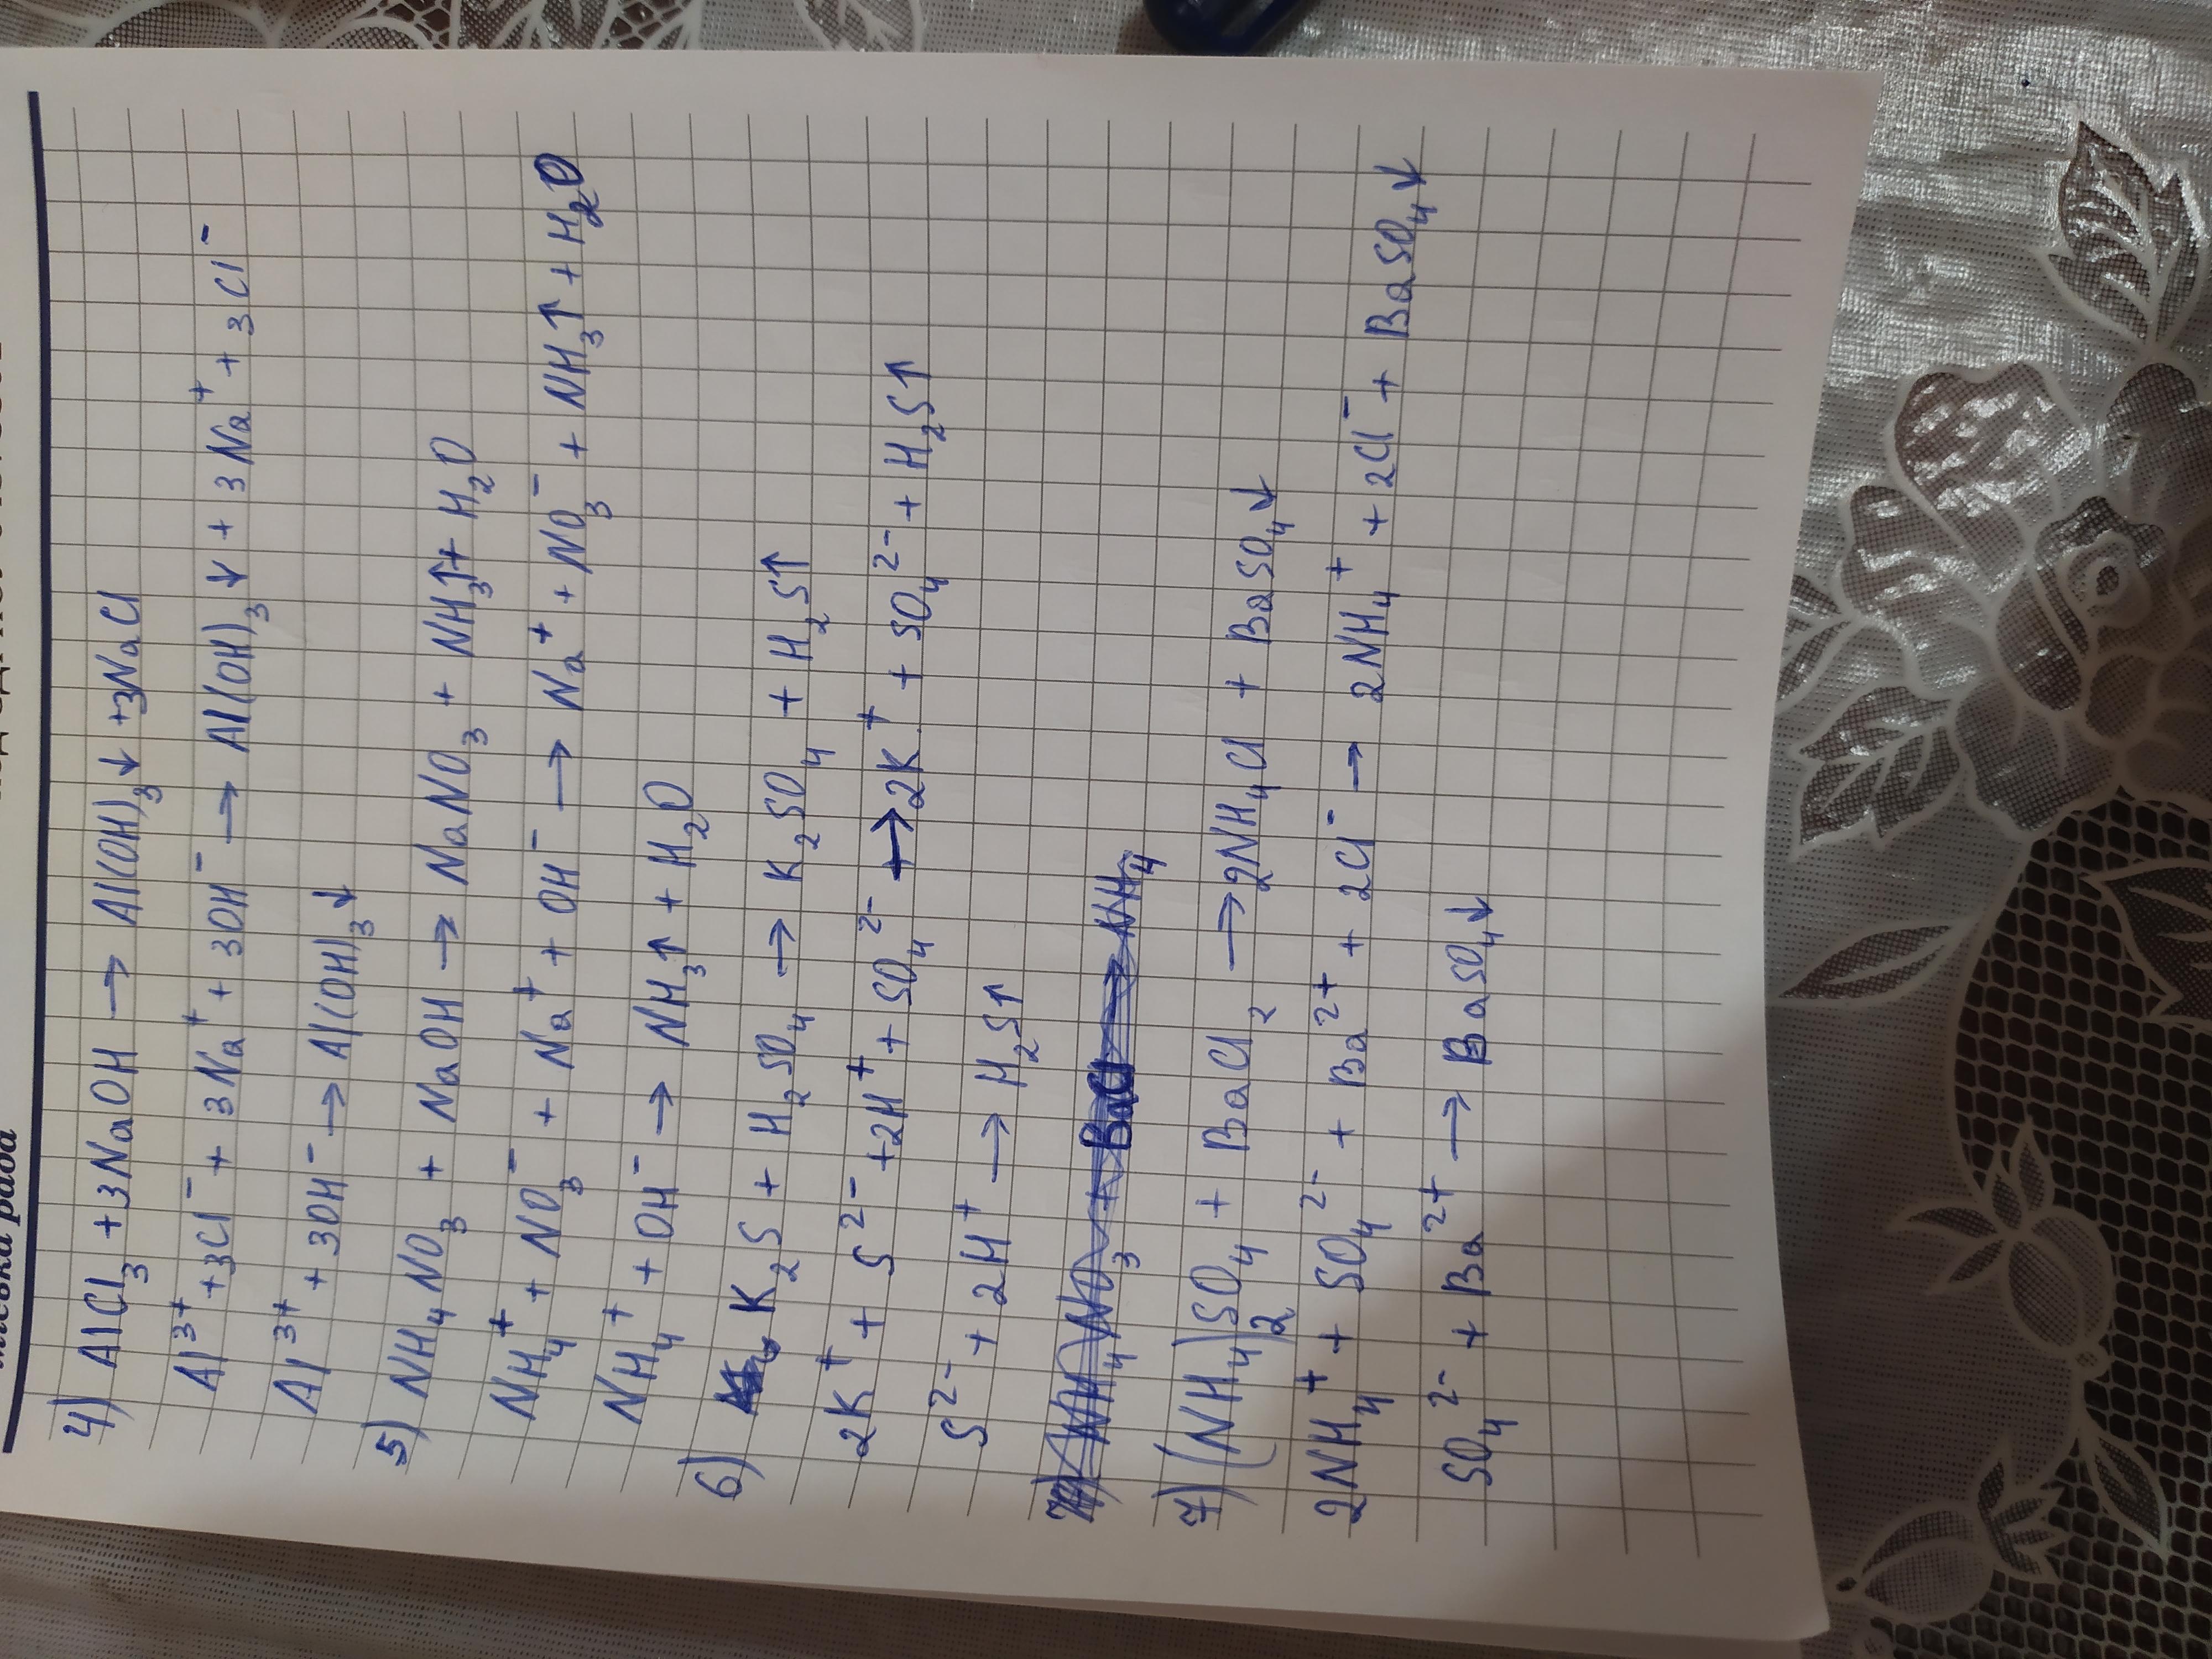 рада
4) AlCl₃ + 3NaOH → Al(OH)₃↓ + 3NaCl
Al³⁺ + 3Cl⁻ + 3Na⁺ + 3OH⁻ → Al(OH)₃↓ + 3Na⁺ + 3Cl⁻
Al³⁺ + 3OH⁻ → Al(OH)₃↓
5) NH₄NO₃ + NaOH → NaNO₃ + NH₃↑ + H₂O
NH₄⁺ + NO₃⁻ + Na⁺ + OH⁻ → Na⁺ + NO₃⁻ + NH₃↑ + H₂O
NH₄⁺ + OH⁻ → NH₃↑ + H₂O
6) K₂S + H₂SO₄ → K₂SO₄ + H₂S↑
2K⁺ + S²⁻ + 2H⁺ + SO₄²⁻ → 2K⁺ + SO₄²⁻ + H₂S↑
S²⁻ + 2H⁺ → H₂S↑
NH₄NO₃ + BaCl → NH₄
7) (NH₄)₂SO₄ + BaCl₂ → 2NH₄Cl + BaSO₄↓
2NH₄⁺ + SO₄²⁻ + Ba²⁺ + 2Cl⁻ → 2NH₄⁺ + 2Cl⁻ + BaSO₄↓
SO₄²⁻ + Ba²⁺ → BaSO₄↓